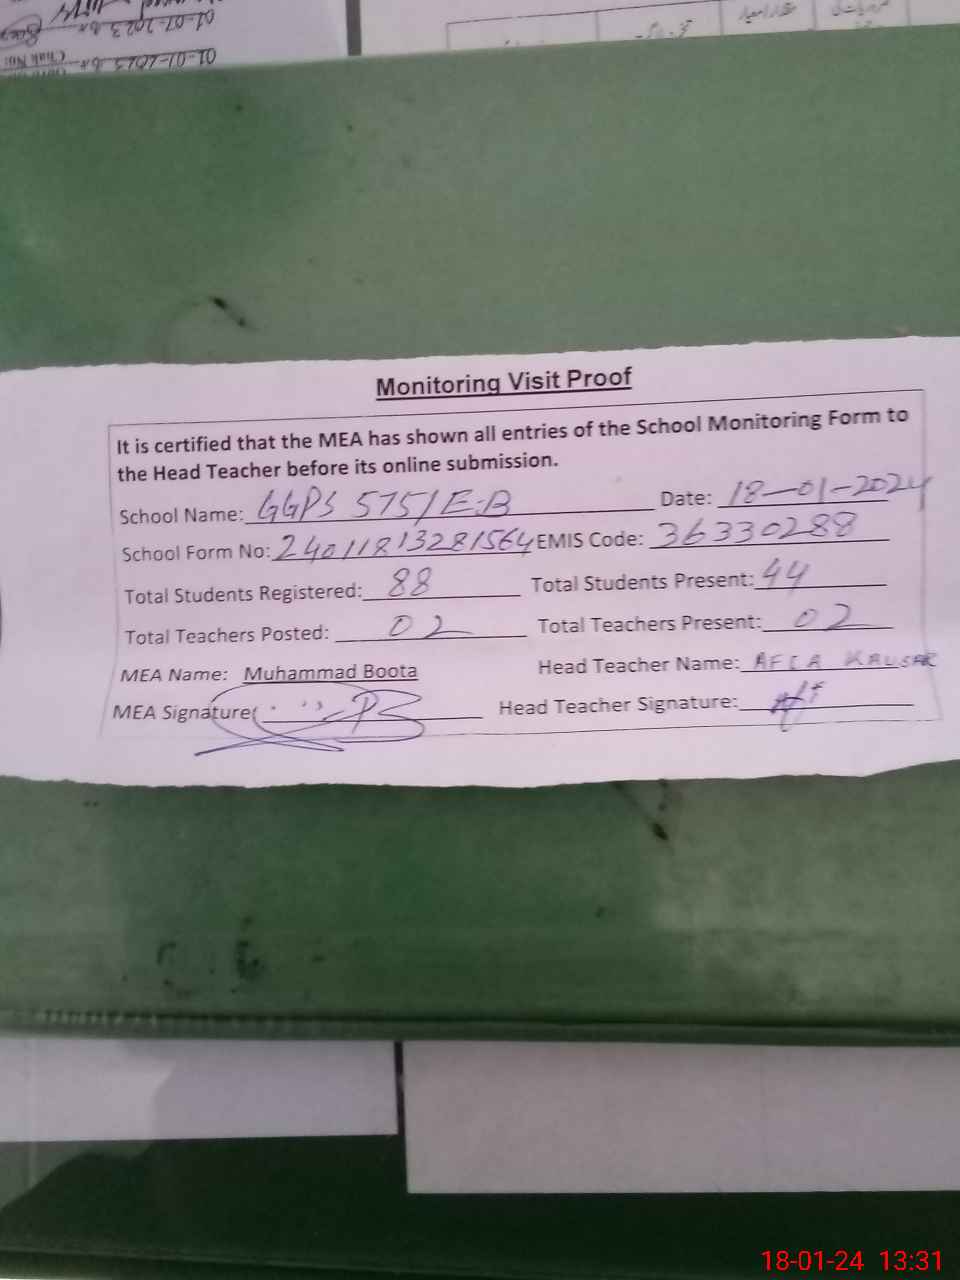 01-07-2023
01-01-2023
Monitoring Visit Proof
It is certified that the MEA has shown all entries of the School Monitoring Form to
the Head Teacher before its online submission.
School Name: GGPS 575/E.B Date: 18-01-2024
School Form No: 240118132815​64 EMIS Code: 36330288
Total Students Registered: 88 Total Students Present: 44
Total Teachers Posted: 02 Total Teachers Present: 02
MEA Name: Muhammad Boota Head Teacher Name: AFIA KAUSAR
MEA Signature Head Teacher Signature:
18-01-24 13:31